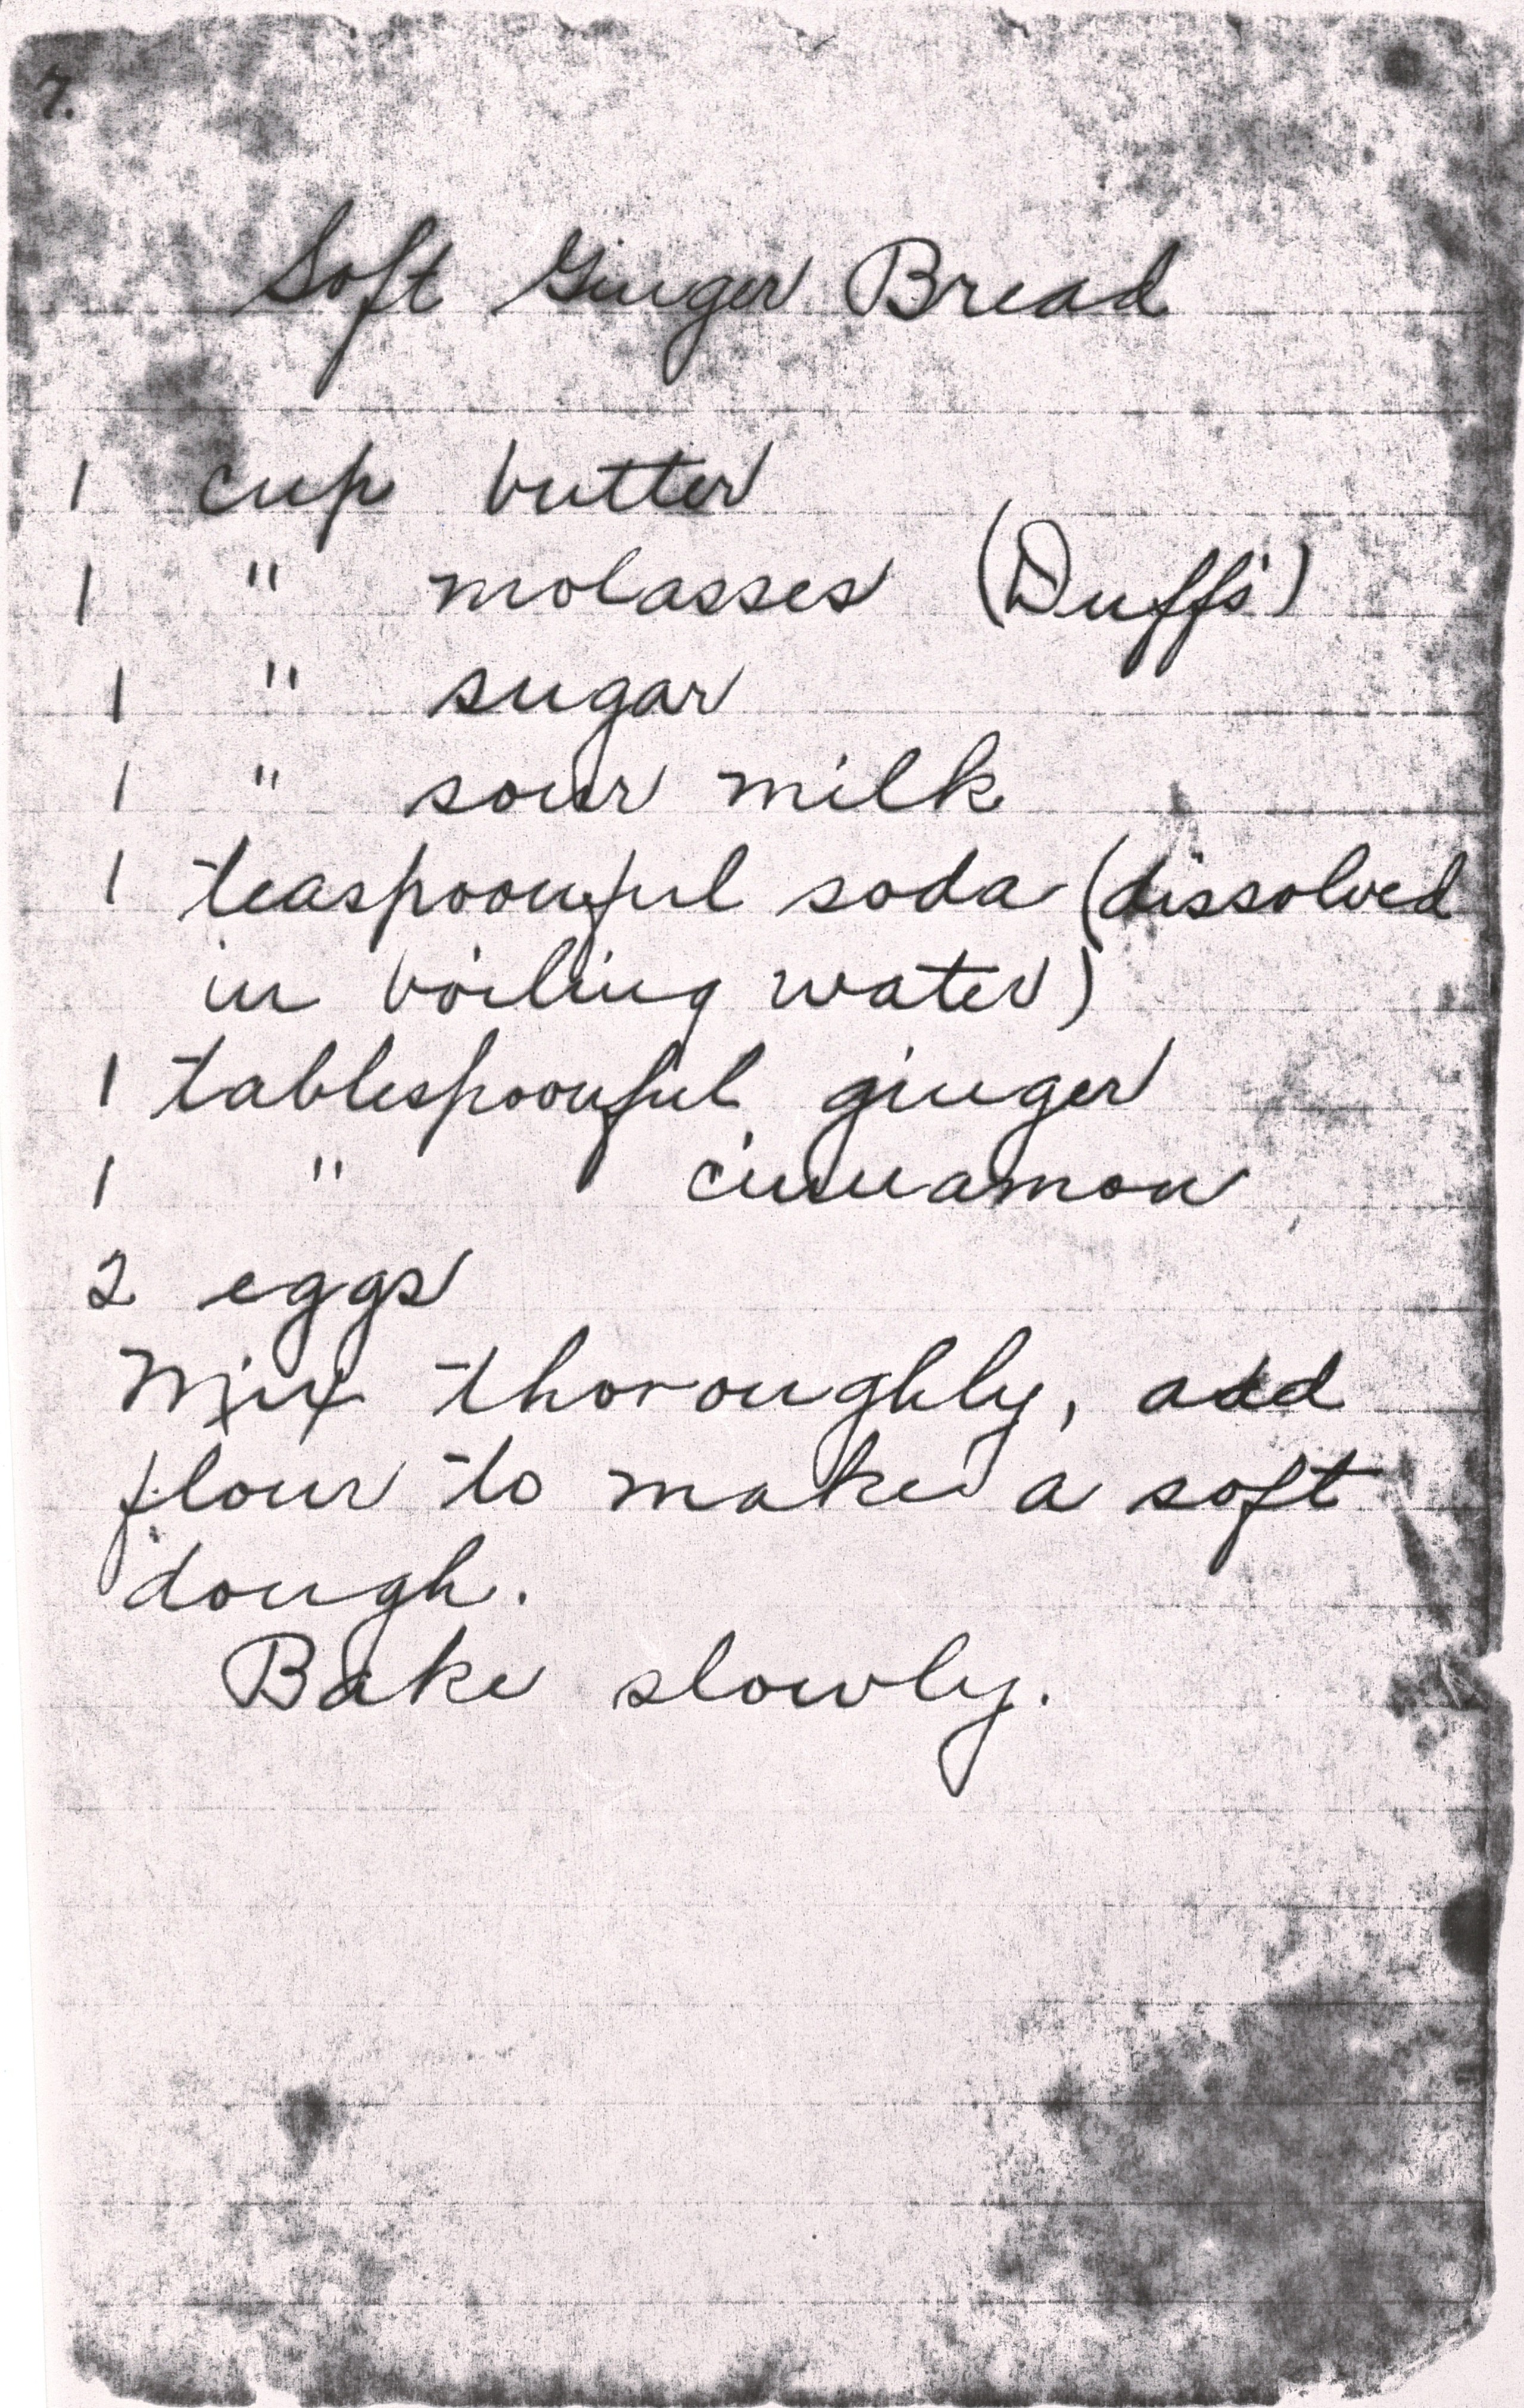 7.
Soft Ginger Bread
1 cup butter
1 " molasses (Duff's)
1 " sugar
1 " sour milk
1 teaspoonful soda (dissolved
in boiling water)
1 tablespoonful ginger
1 " cinnamon
2 eggs
Mix thoroughly, add
flour to make a soft
dough.
Bake slowly.